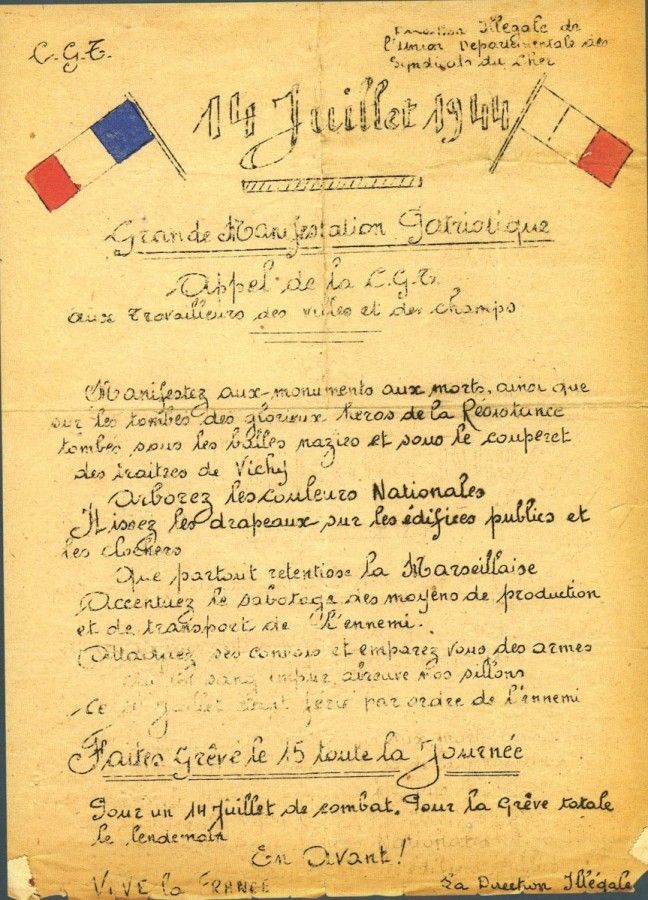 C.G.T.
Direction Illégale de
l'Union Départementale des
Syndicats du Cher
14 Juillet 1944
Grande Manifestation Patriotique
Appel de la C.G.T.
aux Travailleurs des villes et des champs
Manifestez aux monuments aux morts, ainsi que
sur les tombes des glorieux héros de la Résistance
tombés sous les balles nazies et sous le couperet
des traitres de Vichy
Arborez les couleurs Nationales
Hissez les drapeaux sur les édifices publics et
les clochers
Que partout retentisse la Marseillaise
Accentuez le sabotage des moyens de production
et de transport de l'ennemi.
Attaquez ses convois et emparez vous des armes
sang impur abreuve nos sillons
Le 14 Juillet étant férié par ordre de l'ennemi
Faites Grève le 15 toute la Journée
Pour un 14 Juillet de combat. Pour la Grève totale
le lendemain
En Avant!
VIVE la FRANCE
La Direction Illégale